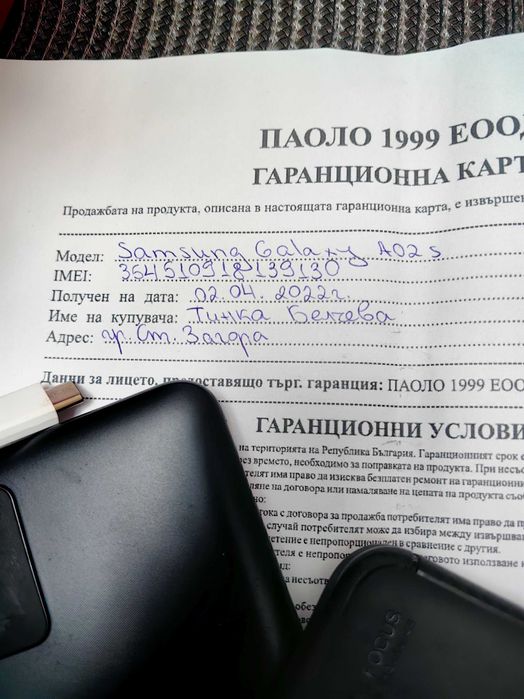 ПАОЛО 1999 ЕООД
ГАРАНЦИОННА КАРТ
Продажбата на продукта, описана в настоящата гаранционна карта, е извършен
Модел: Samsung Galaxy A02s
IMEI: 354510918139130
Получен на дата: 02.04.2022г.
Име на купувача: Тинка Бенчева
Адрес: гр. Ст. Загора
Данни за лицето, предоставящо търг. гаранция: ПАОЛО 1999 ЕОО
ГАРАНЦИОННИ УСЛОВИ
на територията на Република България. Гаранционният срок е
времето, необходимо за поправката на продукта. При несъо
телят има право да изисква безплатен ремонт на гаранционни
ляне на договора или намаляне на цената на продукта съо
но:
гока с договора за продажба потребителят има право да по
случай потребителят може да избира между извършван
четение е непропорционален в сравнение с другия.
теля е непропор говото използване н
нд:
а несъотв
обез
FOCUS